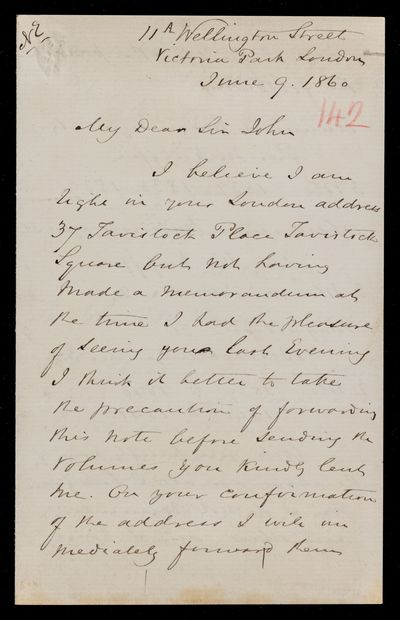 NE
11A Wellington Street
Victoria Park London
June 9. 1860
142
My Dear Sir John
I believe I am
right in your London address
37 Tavistock Place Tavistock
Square but not having
made a memorandum at
the time I had the pleasure
of seeing you last Evening
I think it better to take
the precaution of forwarding
this note before sending the
Volumes you kindly lent
me. On your confirmation
of the address I will im
mediately forward them